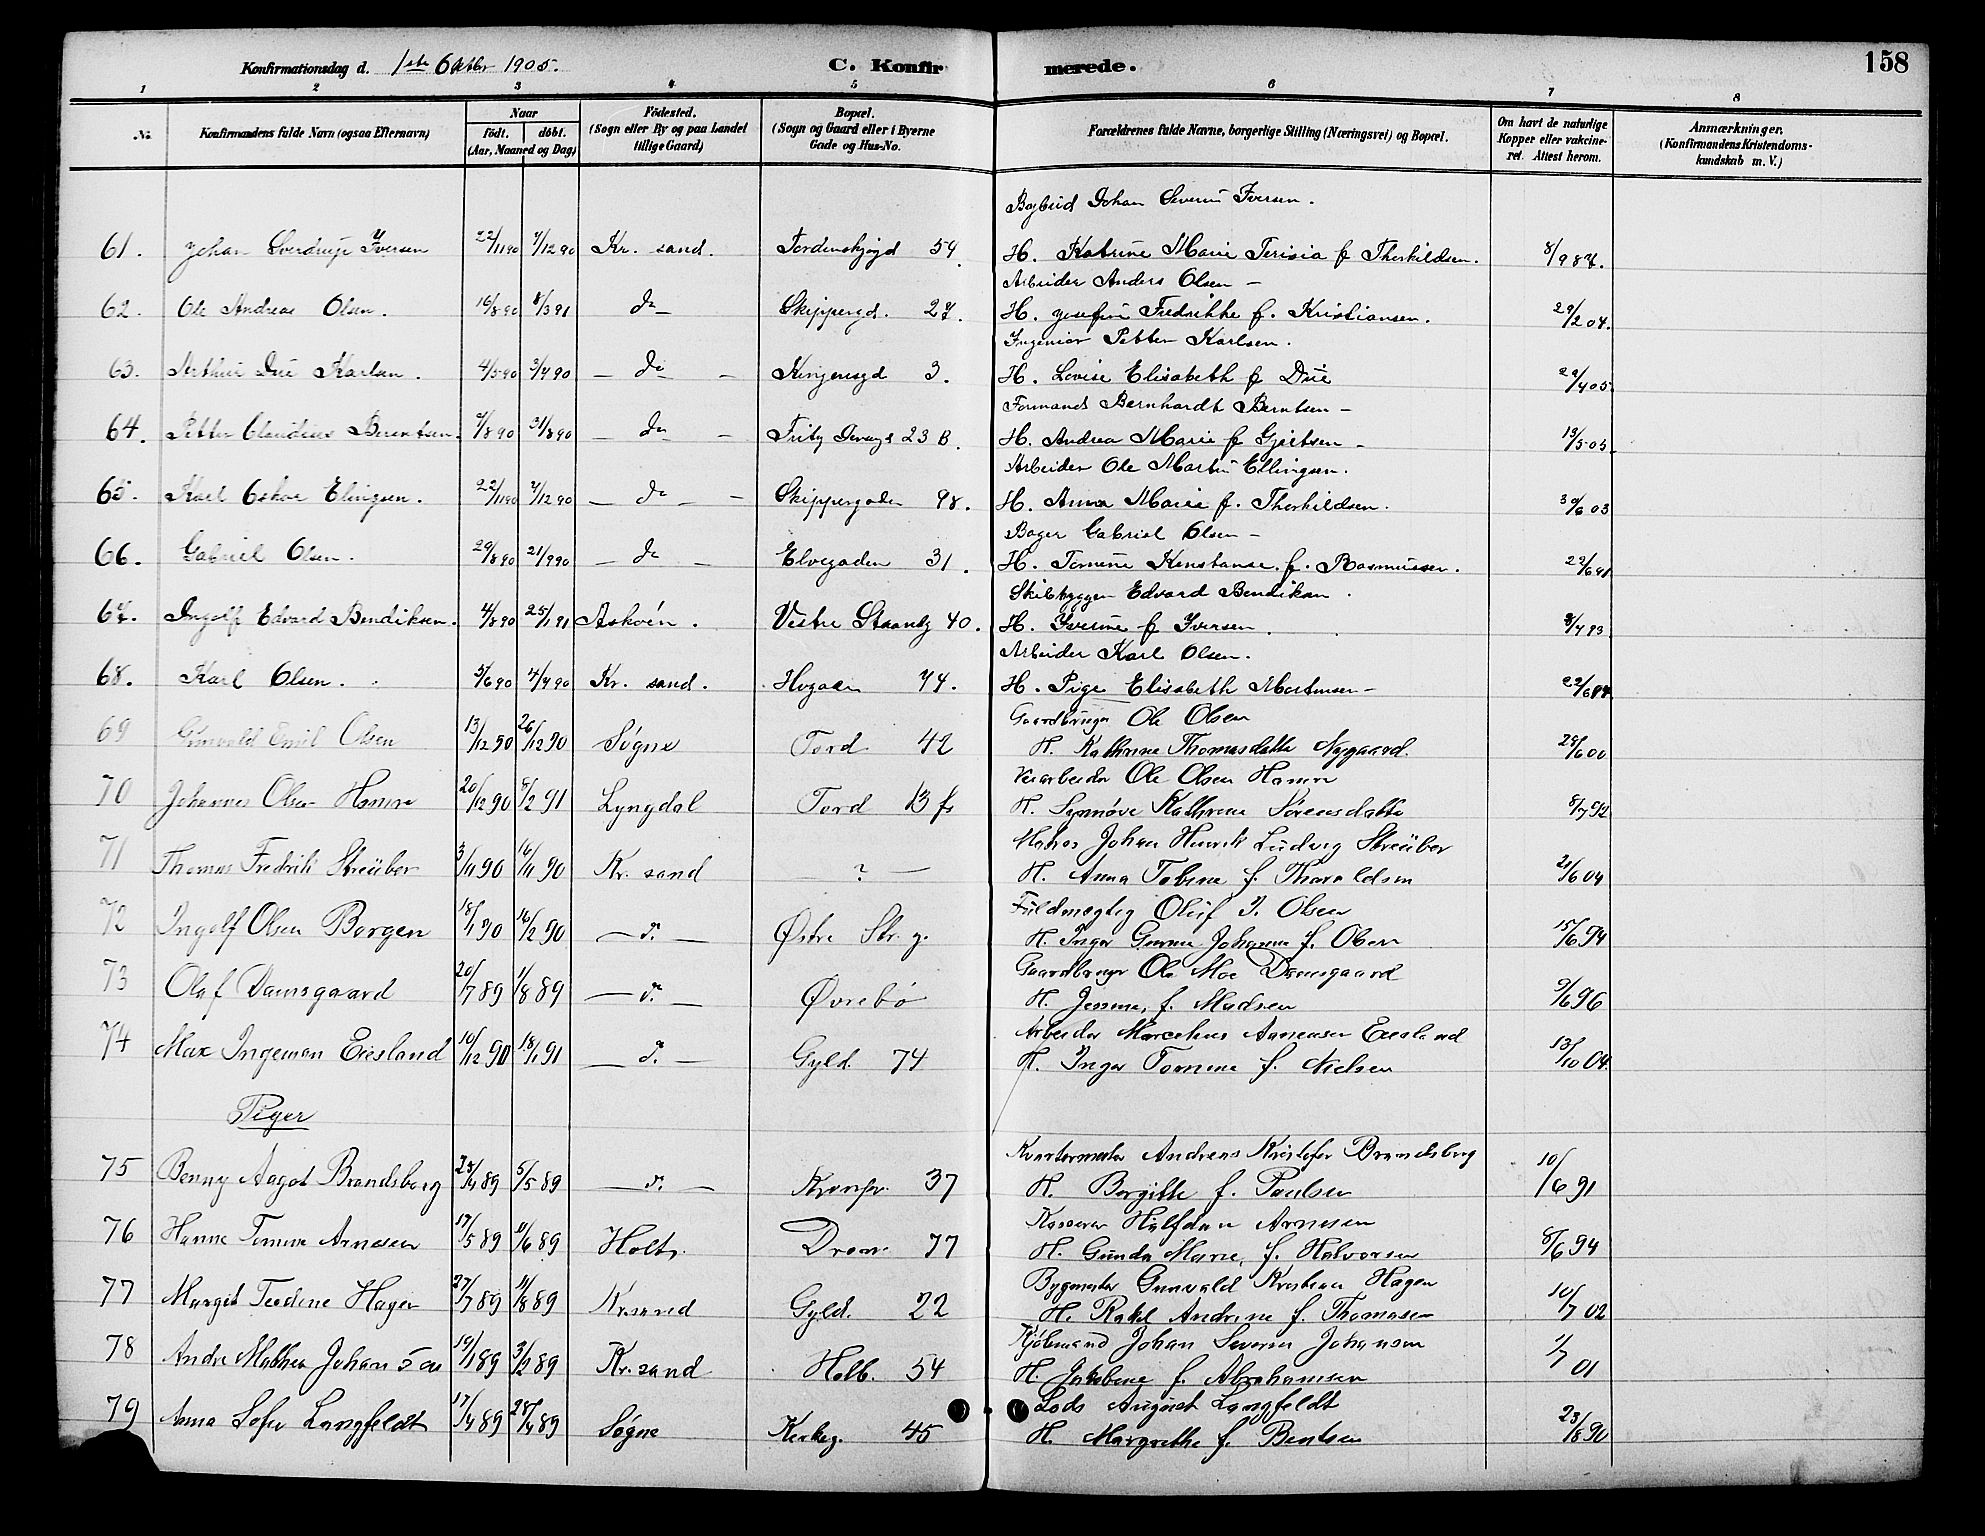 158
Konfirmationsdag d. 1ste Oktbr 1905. C. Konfirmerede.
1 2 3 4 5 6 7 8
No Konfirmandens fulde Navn (ogsaa Efternavn) Naar født. døbt. (Aar, Maaned og Dag) Fødested. (Sogn eller By og paa Landet tillige Gaard) Bopæl. (Sogn og Gaard eller i Byerne Gade og Hus-No. Forældrenes fulde Navne, borgerlige Stilling (Næringsvei) og Bopæl. Om havt de naturlige Kopper eller vakcineret. Attest herom. Anmærkninger. (Konfirmandens Kristendomskundskab m. V.)
Johan Severin Iversen.
61. Johan Sverdrup Iversen 22/11 90 7/12 90 Kr. sand. Tordenskjogd 54. H. Katrine Marie Terisia f Therkildsen. 8/9 87.
Arbeider Anders Olsen –
62. Ole Andreas Olsen. 16/8 90 8/3 91 do Skippergd. 27. H. Josefine Fredrikke f. Kristiansen. 29/2 04.
Ingeniør Petter Karlsen.
63. Arthur Due Karlsen. 4/5 90 3/7 90 — do — Kongensgd 3. H. Lovise Elisabeth f Due 22/4 05.
Formand Bernhardt Berntsen –
64. Petter Claudius Berentsen. 7/8 90 31/8 90 — do — 23 B. H. Andrea Marie f Gjertsen – 13/5 05.
Arbeider Ole Martin Ellingsen.
65. Karl Oskar Elingsen. 22/11 90 7/12 90 — do — Skippergaden 98. H. Anna Marie f. Therkildsen. 30/6 03
Bager Gabriel Olsen –
66. Gabriel Olsen. 29/8 90 21/9 90 — do — Elvegaden 31. H. Tomine Konstanse f. Rasmussen. 22/6 91
Skibbygger Edvard Bendiksen.
67. Ingolf Edvard Bendiksen. 4/8 90 25/1 91 Askøen. Vestre Strandg 40. H. Iverine f Iversen. 8/4 93
Arbeider Karl Olsen.
68. Karl Olsen. 5/6 90 4/7 90 Kr. sand. 74. H. Pige Elisabeth Mortensen –
Gaardbruger Ole Olsen
69 Gunvald Emil Olsen 13/12 90 26/12 90 Søgne Tord 42 H. Kathrine Thomasdatter Nygaard. 28/6 00
Veiarbeider Ole Olsen Hamre
70 Johannes Olsen Hamre 20/12 90 8/2 91 Lyngdal Tord 13 H. Synnøve Kathrine Sørensdatter 8/7 92
Johan Henrik Ludvig Streüber
71 Thomas Fredrik Streüber 3/11 90 16/11 90 Kr. sand — ? — H. Anna Tobine f. Tharaldsen 21/6 04
Fuldmegtig Oluf I. Olsen
72 Ingolf Olsen Borgen 18/1 90 16/2 90 — d. — Østre Str. g. H. Inger Johanne f. Olsen 15/6 94
Gaardbruger Ole Moe Damsgaard
73 Olaf Damsgaard 20/7 89 1/8 89 — d. — Øvrebø H. Jensine, f. Madsen 9/6 96
Arbeider Marcelius Aanensen Eiesland
74 Max Ingeman Eiesland 10/12 90 18/1 91 — d. — Gyld. 74 H. Inger Tomine f. Nielsen 13/10 04
Piger
Kvartermester Andreas Kristofer Brandsborg
75 Benny Aagot Brandsborg 23/4 89 5/5 89 — d. — Kronpr. 37 H. Borgitte f. Paulsen 10/6 91
Kasserer Halfdan Arnesen
76 Hanne Tomine Arnesen 17/5 89 9/6 89 Holt. Dron. 77 H. Gunda Marie, f. Halvorsen 8/6 94
Bygmester Gunvald Kristian Hagen
77 Margit Teodine Hagen 27/7 89 11/8 89 Krsand Gyld. 22 H. Rakel Andrine f. Thomasen 10/7 02
Kjøbmand Johan Severin Johansen
78 Andrea Mathea Johansen 19/1 89 3/2 89 Kr. sand Holb. 54 H. Jakobine f. Abrahamsen 1/7 01
Lods August Langfeldt
79 Anna Sofie Langfeldt 17/4 89 28/4 89 Søgne Kirkeg. 45 H. Margrethe f. Bentsen 23/8 90